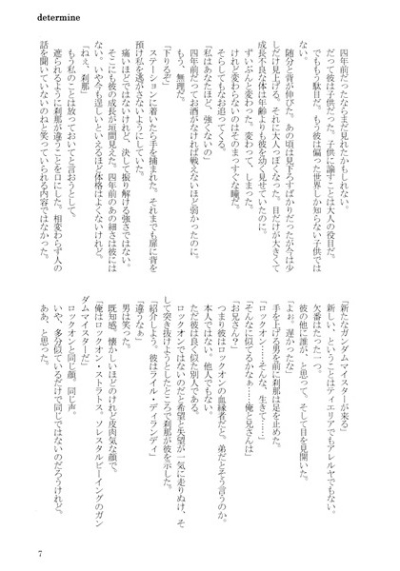 determine
四年前だったならまだ見れたかもしれない。
だって彼は子供だった。子供に諭すことは大人の役目だ。
でももう駄目だ。もう彼は偏った世界しか知らない子供では
随分と背が伸びた。あの頃は見下ろすばかりだったが今は少
しだけ見上げる。それに大人っぽくなった。目だけが大きくて
成長不良な体は年齢よりも彼を幼く見せていたのに。
ずいぶんと変わった。変わって、しまった。
けれど変わらないのはそのまっすぐな瞳だ。
そらしてもなお追ってくる。
「私はあなたほど、強くないの」
四年前だってお酒がなければ戦えないほど弱かったのに。
もう、無理だ。
「下りるぞ」
ステーションに着いたら手を捕まれた。それまでも扉に背を
預け私を逃がさないようにしていた。
痛いほどではないけれど、決して振り解ける強さではない。
そこにも彼の成長が垣間見えた。四年前のあの細さは彼には
ない。いや今も逞しいといえるほど体格はよくないけれど。
「ねぇ、刹那」
もう私のことは放っておいてと言おうとして。
遮られるように刹那が違うことを口にした。相変わらず人の
話を聞いていないのねと笑っていられる内容ではなかった。
「新たなガンダムマイスターが来る」
新しい、ということはティエリアでもアレルヤでもない。
欠番はたった一つ。
彼の他に誰が、と思って。そして目を見開いた。
「よお、遅かったな」
手を上げる男を前に刹那は足を止めた。
「ロックオン……そんな、生きて……」
「そんなに似てるかなぁ…俺と兄さんは」
「お兄さん？」
つまり彼はロックオンの血縁者だと。弟だとそう言うのか。
本人ではない。他人でもない。
ただ彼は良く似た別人である。
ロックオンではないのだと希望と失望が一気に走りぬけ、そ
して突き抜けようとしたところで刹那が彼を示した。
「紹介しよう。彼はライル・ディランディ」
「違うなぁ」
男は笑った。
既知感。懐かしいほどのけれど皮肉気な顔で。
「俺はロックオン・ストラトス。ソレスタルビーイングのガン
ダムマイスターだ」
ロックオンと同じ顔。同じ声。
いや、多分似ているだけで同じではないのだろうけれど。
ああ、と思った。
7